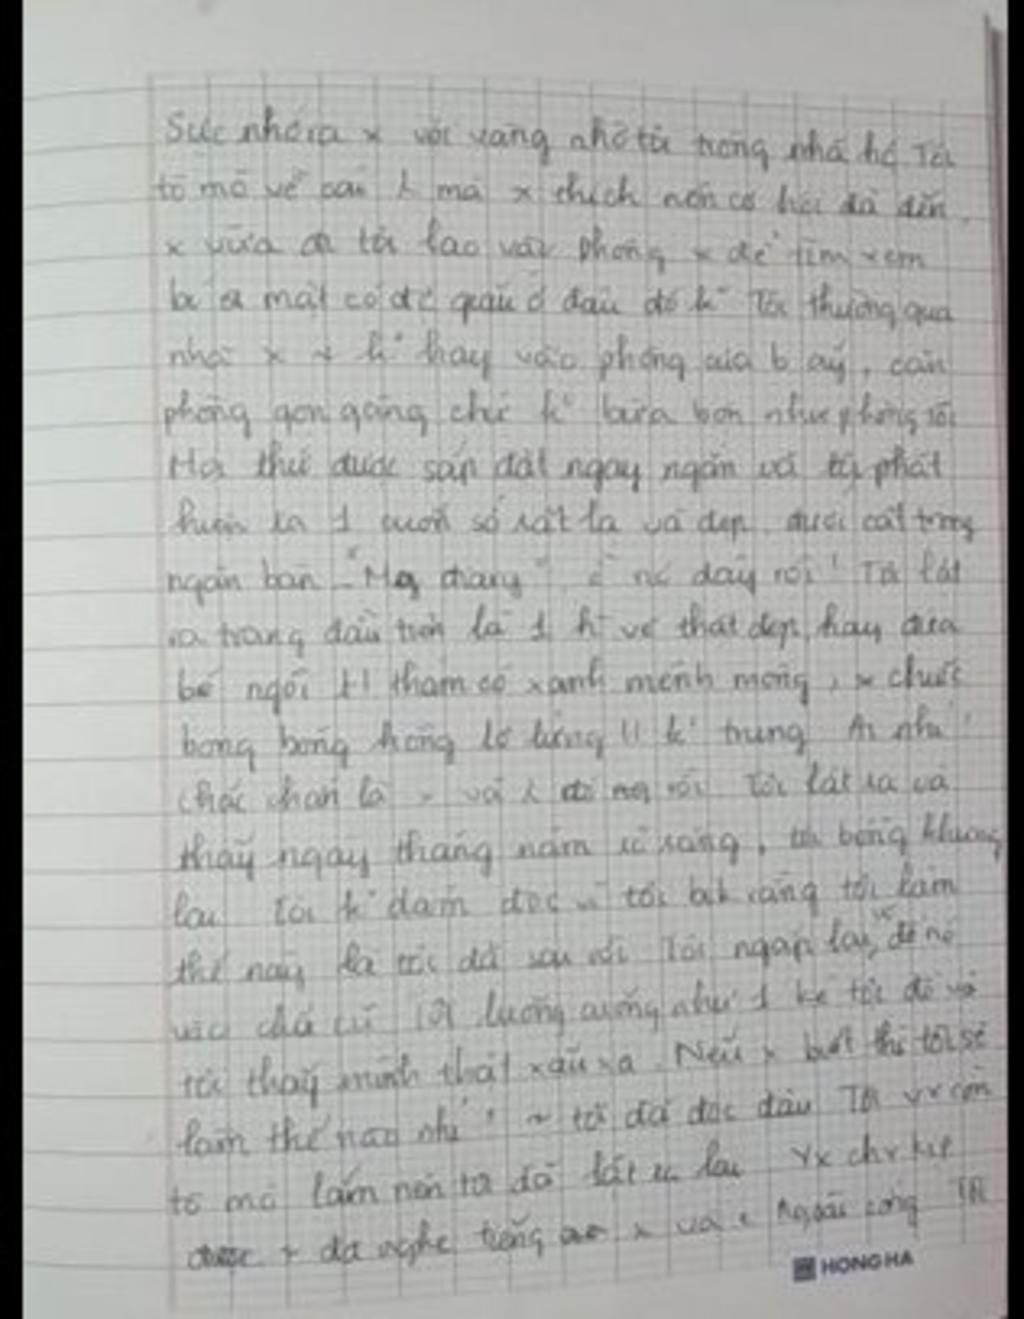 Sực nhớ ra x vội vàng nhờ tôi trông nhà hộ Tôi
tò mò về bạn k mà x thích nên cơ hội đã đến.
x vừa đi tôi lao vào phòng x để tìm xem
bí mật có để quấu ở đâu đó k° Tôi thường qua
nhà x k° hay vào phòng của b ấy, căn
phòng gọn gàng chứ k° bừa bộn như phòng tôi
Mọi thứ được sắp đặt ngay ngắn và tôi phát
hiện ra 1 cuốn sổ rất lạ và đẹp được cất trong
ngăn bàn "Mg chang" nó đây rồi! Tôi lật
ra trang đầu tiên là 1 h vẽ thật đẹp, hay đứa
bé ngồi thảm cỏ xanh mênh mông, x chiếc
bong bóng hồng lơ lửng k° trung Ai nhỉ
chắc chắn là x và rồi Tôi lật ra và
thấy ngày tháng năm rõ ràng, tôi bỗng khựng
lại Tôi k° dám đọc vì tôi bit rằng tôi làm
thế này là tôi đã sai rồi Tôi ngập lại, để nó
vào chỗ cũ Tôi luống cuống như 1 kẻ tội đồ và
tôi thấy mình thật xấu xa. Nếu x biết thì tôi sẽ
làm thế nào nhỉ! tôi đã đọc đâu Tôi vx còn
tò mò lắm nên tôi đã lật lại Vx chx kịp
đọc t đã nghe tiếng x và Ngoài cổng Tôi
HONG HA